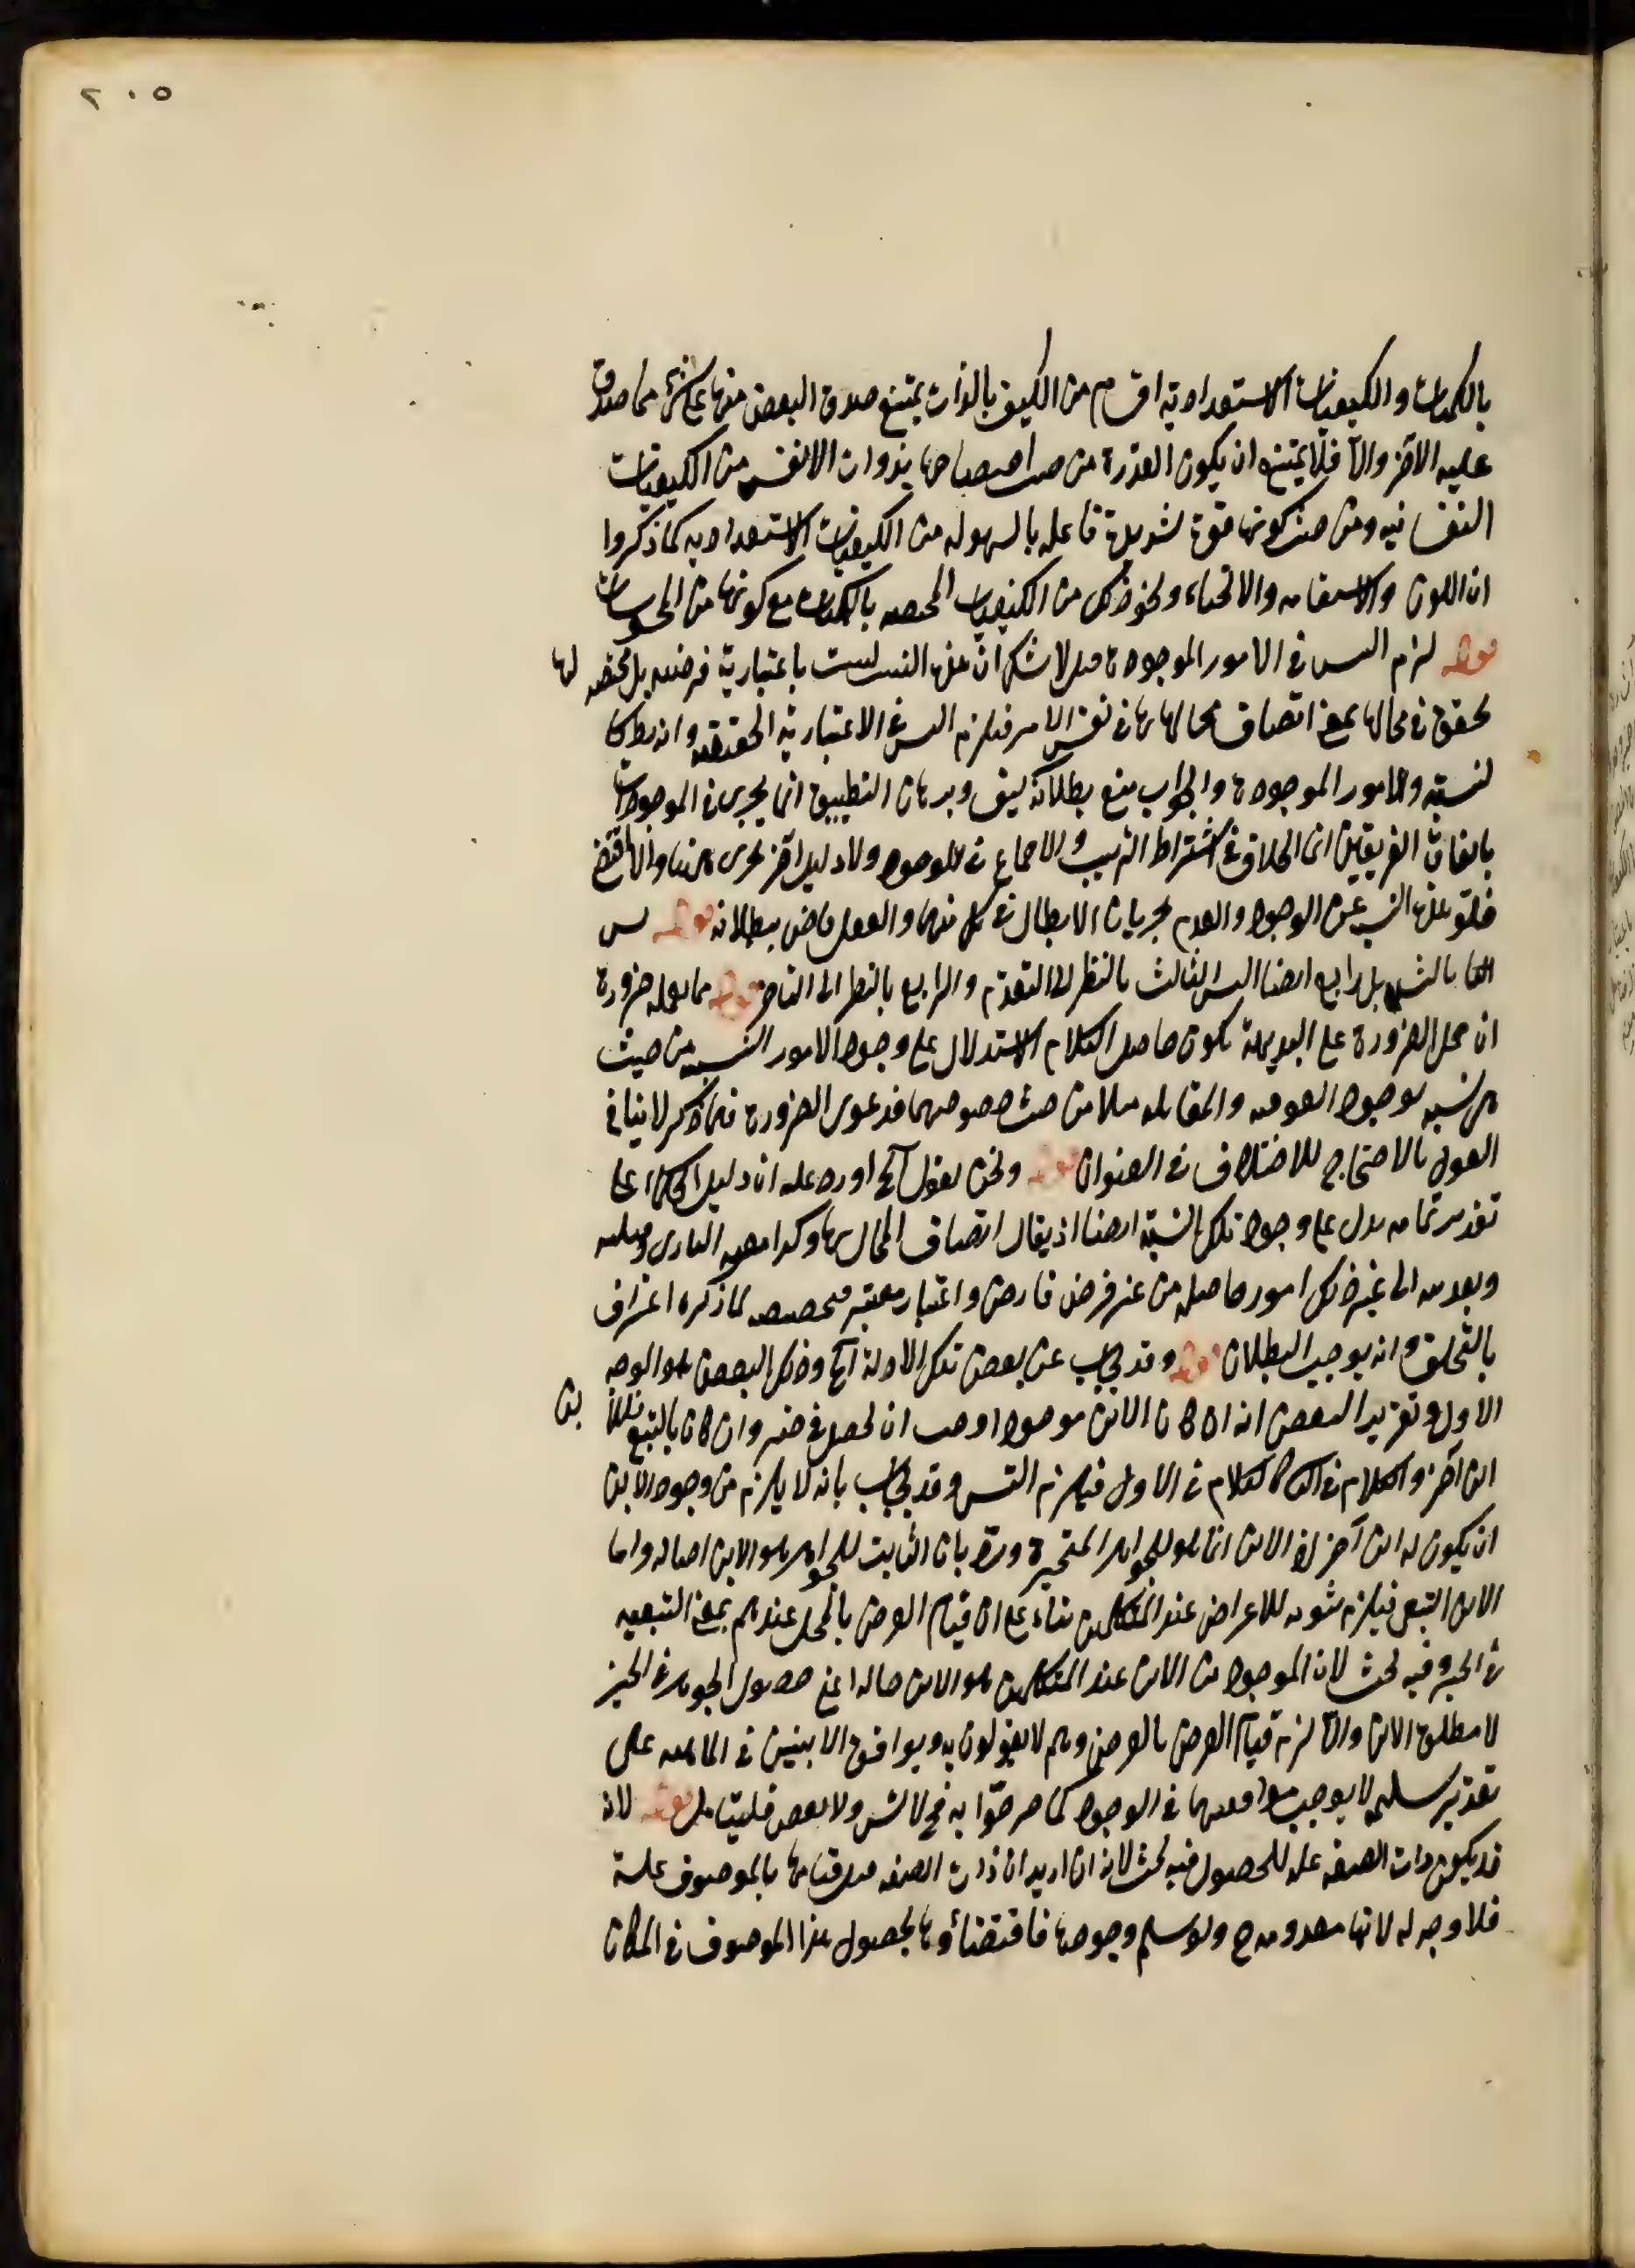 ٢٠٥
بالكميات والكيفيات الاستعدادية اقسام من الكيف بالذات يمتنع صدق البعض منها على شئ مما صدق
عليه الآخر والا فلا يمتنع ان يكون القدرة من حيث اختصاصها بذوات الانفس من الكيفيات
النفسانية ومن حيث كونها قوة شديدة فاعلة بالسهولة من الكيفيات الاستعدادية كما ذكروا
ان اللون والاستقامة والانحناء ونحو ذلك من الكيفيات المختصة بالكميات مع كونها من المحسوسات
قوله لزم التس في الامور الموجودة قيل لا شك ان هذه النسب ليست باعتبارية فرضية بل محضة لها
تحقق في محالها بمعنى اتصاف محالها بها في نفس الامر فيلزم التس في الاعتبارية الحقيقية وانه بط كما
لنسبة والامور الموجودة والجواب منع بطلانه كيف وبرهان التطبيق انما يجري في الموجودات
باتفاق الفريقين انما الخلاف في اشتراط الترتيب والاجماع في الوجود ولا دليل آخر يجري ههنا والا اقتضى
خلو هذه النسب عن الوجود والعدم بجريان الابطال في كل منهما والعقل قاض ببطلانه قوله تس
الثالث بل رابع ايضا التس الثالث بالنظر الى التقدم والرابع بالنظر الى التأخر قوله مما يعلم ضرورة
ان حمل الضرورة على البديهة يكون حاصل الكلام الاستدلال على وجود الامور النسبية من حيث
هي نسبة بوجود الفوقية والمقابلة مثلا من حيث خصوصهما فدعوى الضرورة فيما ذكر لا ينافي
القول بالاحتجاج للاختلاف في العنوان قوله ونحن نقول آه اورد عليه ان دليل الحكماء على
تقدير تمامه يدل على وجود تلك النسبة ايضا اذ يقال اتصاف المحال بها وكذا معية الباري وقبليته
وبعديته الى غير ذلك امور حاصلة من غير فرض فارض واعتبار معتبر فتخصيصه بما ذكره اعتراف
بالتخلف وانه يوجب البطلان قوله وقد يجاب عن بعض تلك الادلة آه وذلك البعض هو الوجه
الاول وتقرير البعض انه ان كان الاين موجودا وجب ان يحصل في حيز وان كان بالتبع فللاين
اين آخر والكلام في الثاني كالكلام في الاول فيلزم التس وقد يجاب بانه لا يلزم من وجود الاين
ان يكون له اين آخر لان الاين انما هو للجواهر المتحيزة ورد بان الثابت للجواهر هو الاين اصالة واما
الاين التبعي فيلزم ثبوته للاعراض عند المتكلمين بناء على ان قيام العرض بالمحل عندهم بمعنى التبعية
في الحيز وفيه بحث لان الموجود من الاين عند المتكلمين هو الاين اصالة اعني حصول الجوهر في الحيز
لا مطلق الاين والا لزم قيام العرض بالعرض وهم لا يقولون به وتوافق الاينين في الماهية على
تقدير تسليمه لا يوجب توافقهما في الوجود كما صرحوا به في لا تس ولا بعض فليتأمل قوله لانه
قد يكون ذات الصفة علة للحصول فيه بحث لانه ان اريد ان ذات الصفة قبل قيامها بالموصوف علة
فلا وجه له لانها معدومة ح ولو سلم وجودها فاقتضاؤها لحصول هذا الموصوف في المكان